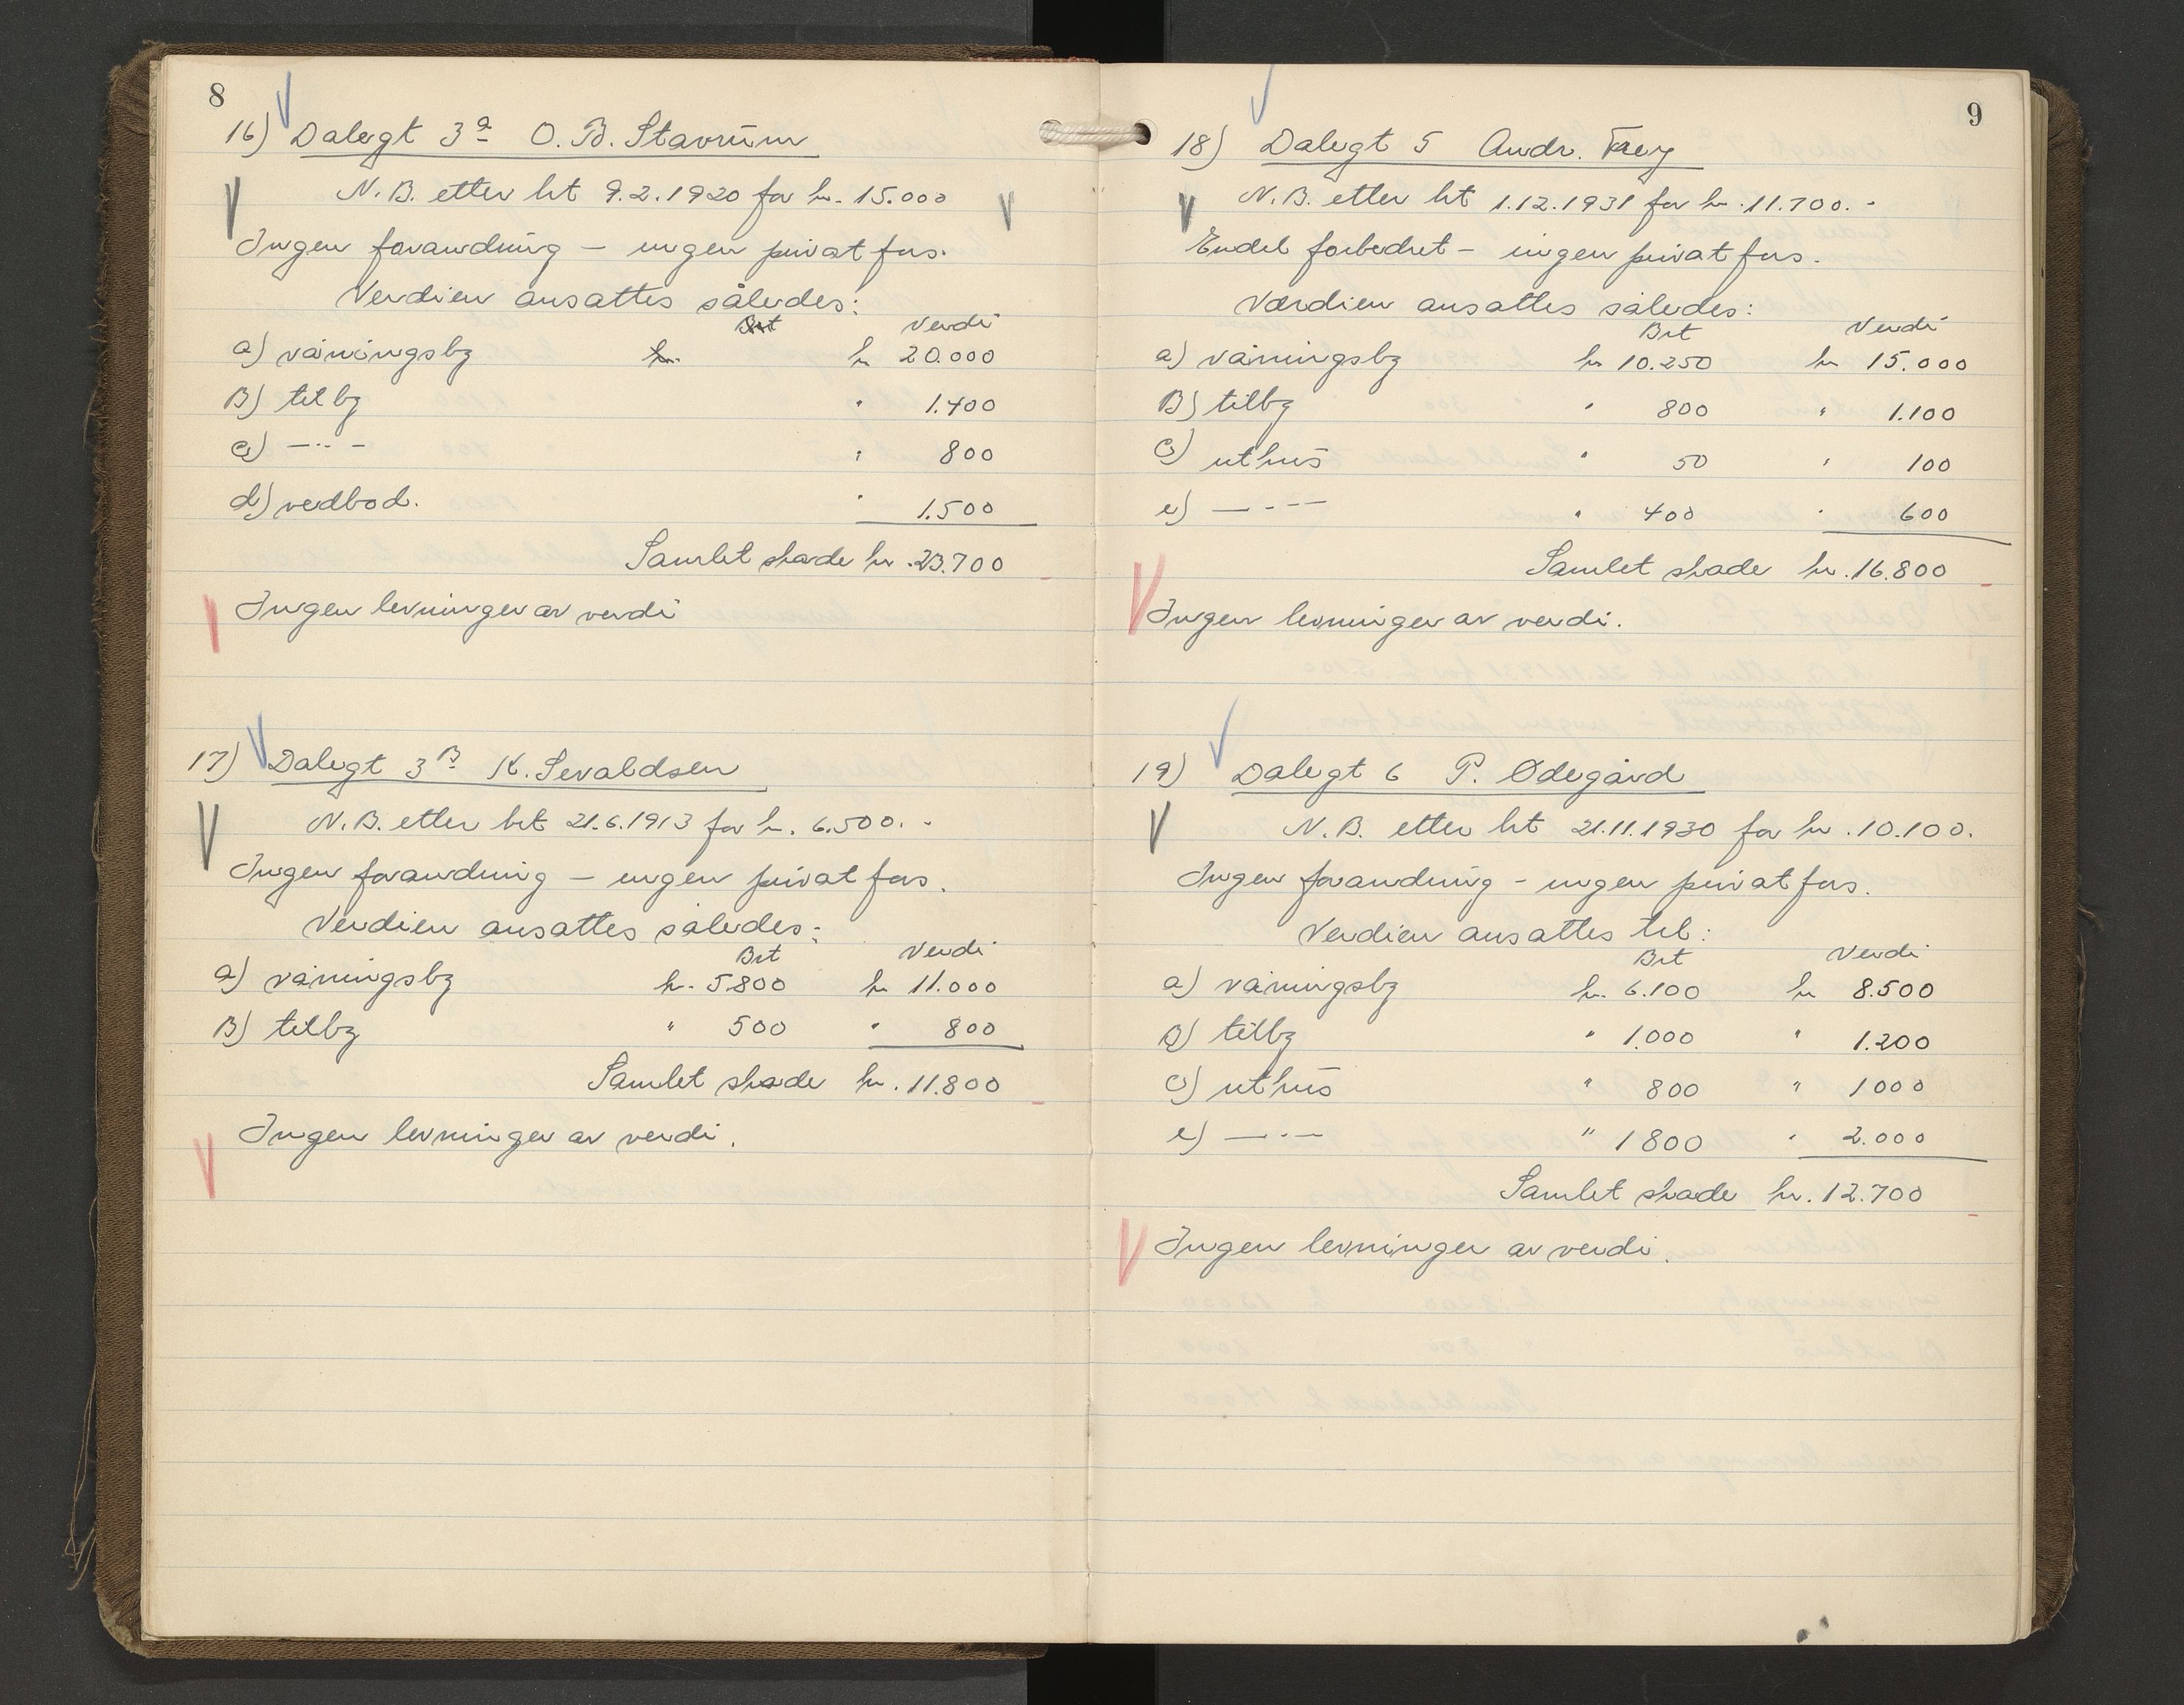 8
16) Dalegt 3a O. B. Stavrum
N. B. etter brt 9.2.1920 for kr. 15.000
Ingen forandring – ingen privat fors.
Verdien ansattes således:
Brt Verdi
a) våningsby kr. kr 20.000
B) tilby " 1.400
c) —"— " 800
d) vedbod. " 1.500
Samlet skade kr. 23.700
Ingen levninger av verdi
17) Dalegt 3B K. Sevaldsen
N. B. etter brt 21.6.1913 for kr. 6.500.-
Ingen forandring – ingen privat fors.
Verdien ansattes således:
Brt Verdi
a) våningsby kr. 5.800 kr 11.000
B) tilby " 500 " 800
Samlet skade kr. 11.800
Ingen levninger av verdi.
9
18) Dalegt 5 Andr.
N. B. etter brt 1.12.1931 for kr. 11.700.-
Endel forbedret – ingen privat fors.
Værdien ansattes således:
Brt Verdi
a) våningsby kr 10.250 kr 15.000
B) tilby " 800 " 1.100
c) uthus " 50 " 100
e) —"— " 400 " 600
Samlet skade kr. 16.800
Ingen levninger av verdi.
19) Dalegt 6 P. Ødegård
N. B. etter brt 21.11.1930 for kr. 10.100.
Ingen forandring – ingen privat fors.
Verdien ansattes til:
Brt Verdi
a) våningsby kr. 6.100 kr 8.500
B) tilby " 1.000 " 1.200
c) uthus " 800 " 1000
e) —"— " 1800 " 2.000
Samlet skade kr. 12.700
Ingen levninger av verdi.